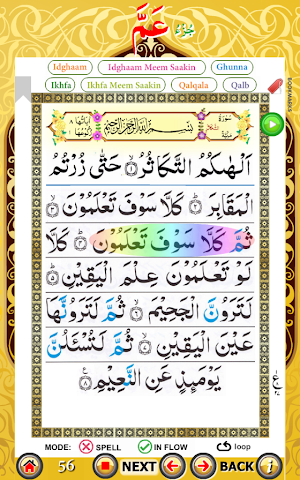 جُزْء عَمَّ
Idghaam Idghaam Meem Saakin Ghunna
Ikhfa Ikhfa Meem Saakin Qalqala Qalb
BOOKMARKS
بِسْمِ اللهِ الرَّحْمٰنِ الرَّحِيْمِ
اَلْهٰىكُمُ التَّكَاثُرُ ۙ﴿۱﴾ حَتّٰى زُرْتُمُ
الْمَقَابِرَ ؕ﴿۲﴾ كَلَّا سَوْفَ تَعْلَمُوْنَ ۙ﴿۳﴾
ثُمَّ كَلَّا سَوْفَ تَعْلَمُوْنَ ؕ﴿۴﴾ كَلَّا
لَوْ تَعْلَمُوْنَ عِلْمَ الْيَقِيْنِ ؕ﴿۵﴾
لَتَرَوُنَّ الْجَحِيْمَ ۙ﴿۶﴾ ثُمَّ لَتَرَوُنَّهَا
عَيْنَ الْيَقِيْنِ ۙ﴿۷﴾ ثُمَّ لَتُسْـَٔلُنَّ
يَوْمَىِٕذٍ عَنِ النَّعِيْمِ ﴿۸﴾
MODE: SPELL IN FLOW loop
56 NEXT BACK i